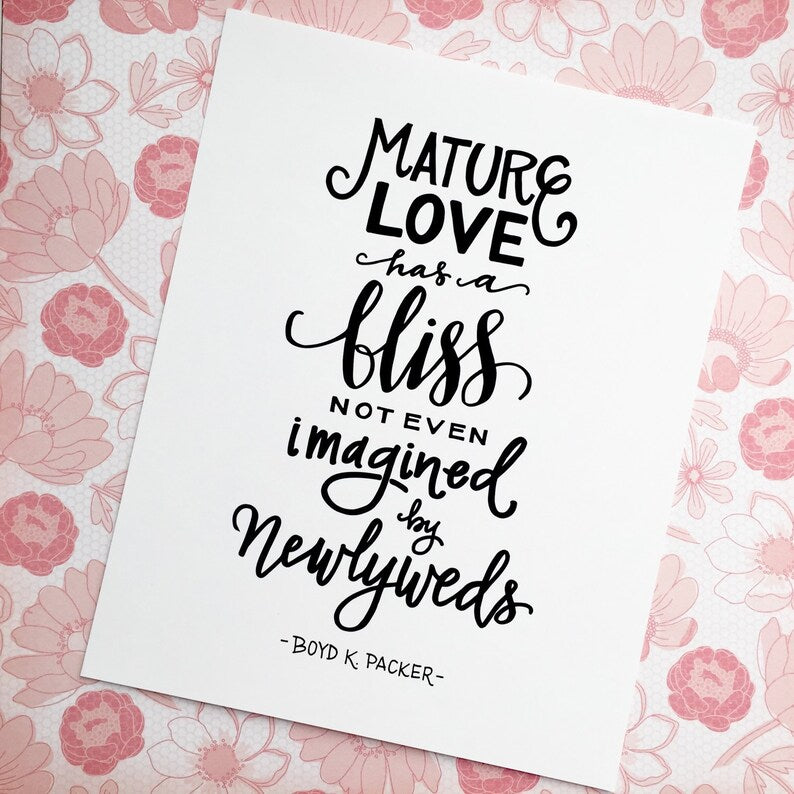 MATURE
LOVE
has a
bliss
NOT EVEN
imagined
by
Newlyweds
-BOYD K. PACKER-